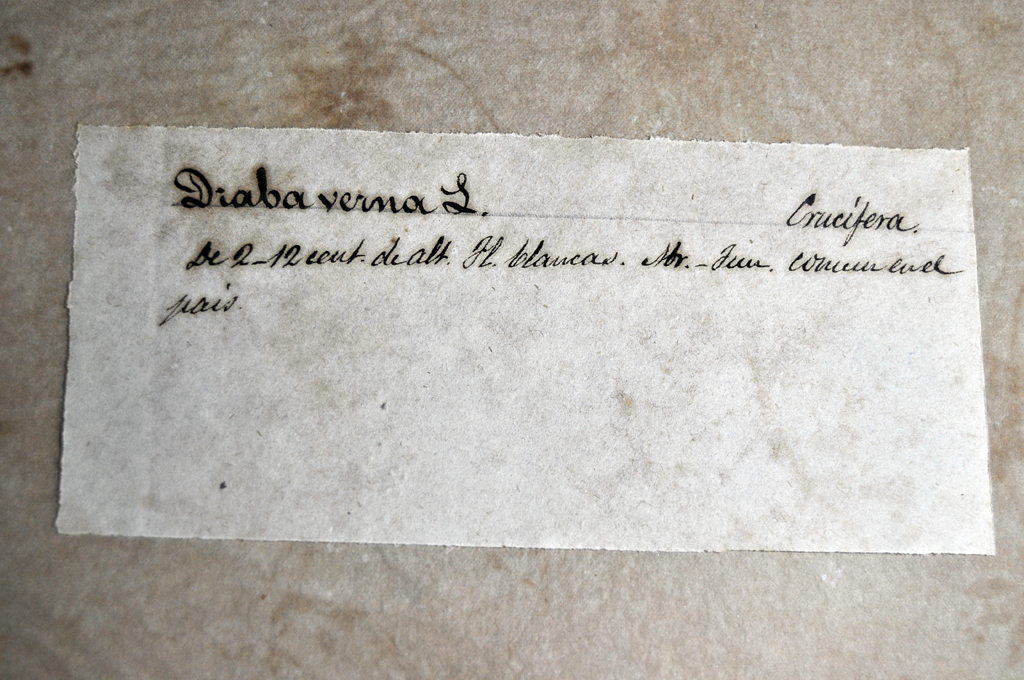 Draba verna L. Crucífera.
De 2-12 cent. de alt. Fl. blancas. Abr.-Jun. comun en el
pais.